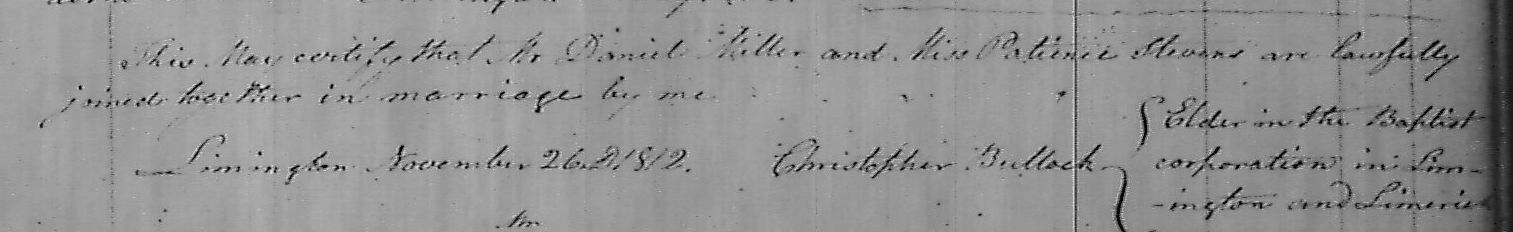 This May certify that Mr Daniel Miller and Miss Patience Stevens are lawfully
joined together in marriage by me
Limington November 26.D.1812. Christopher Bullock
Elder in the Baptist
corporation in Lim-
-ington and Limerick